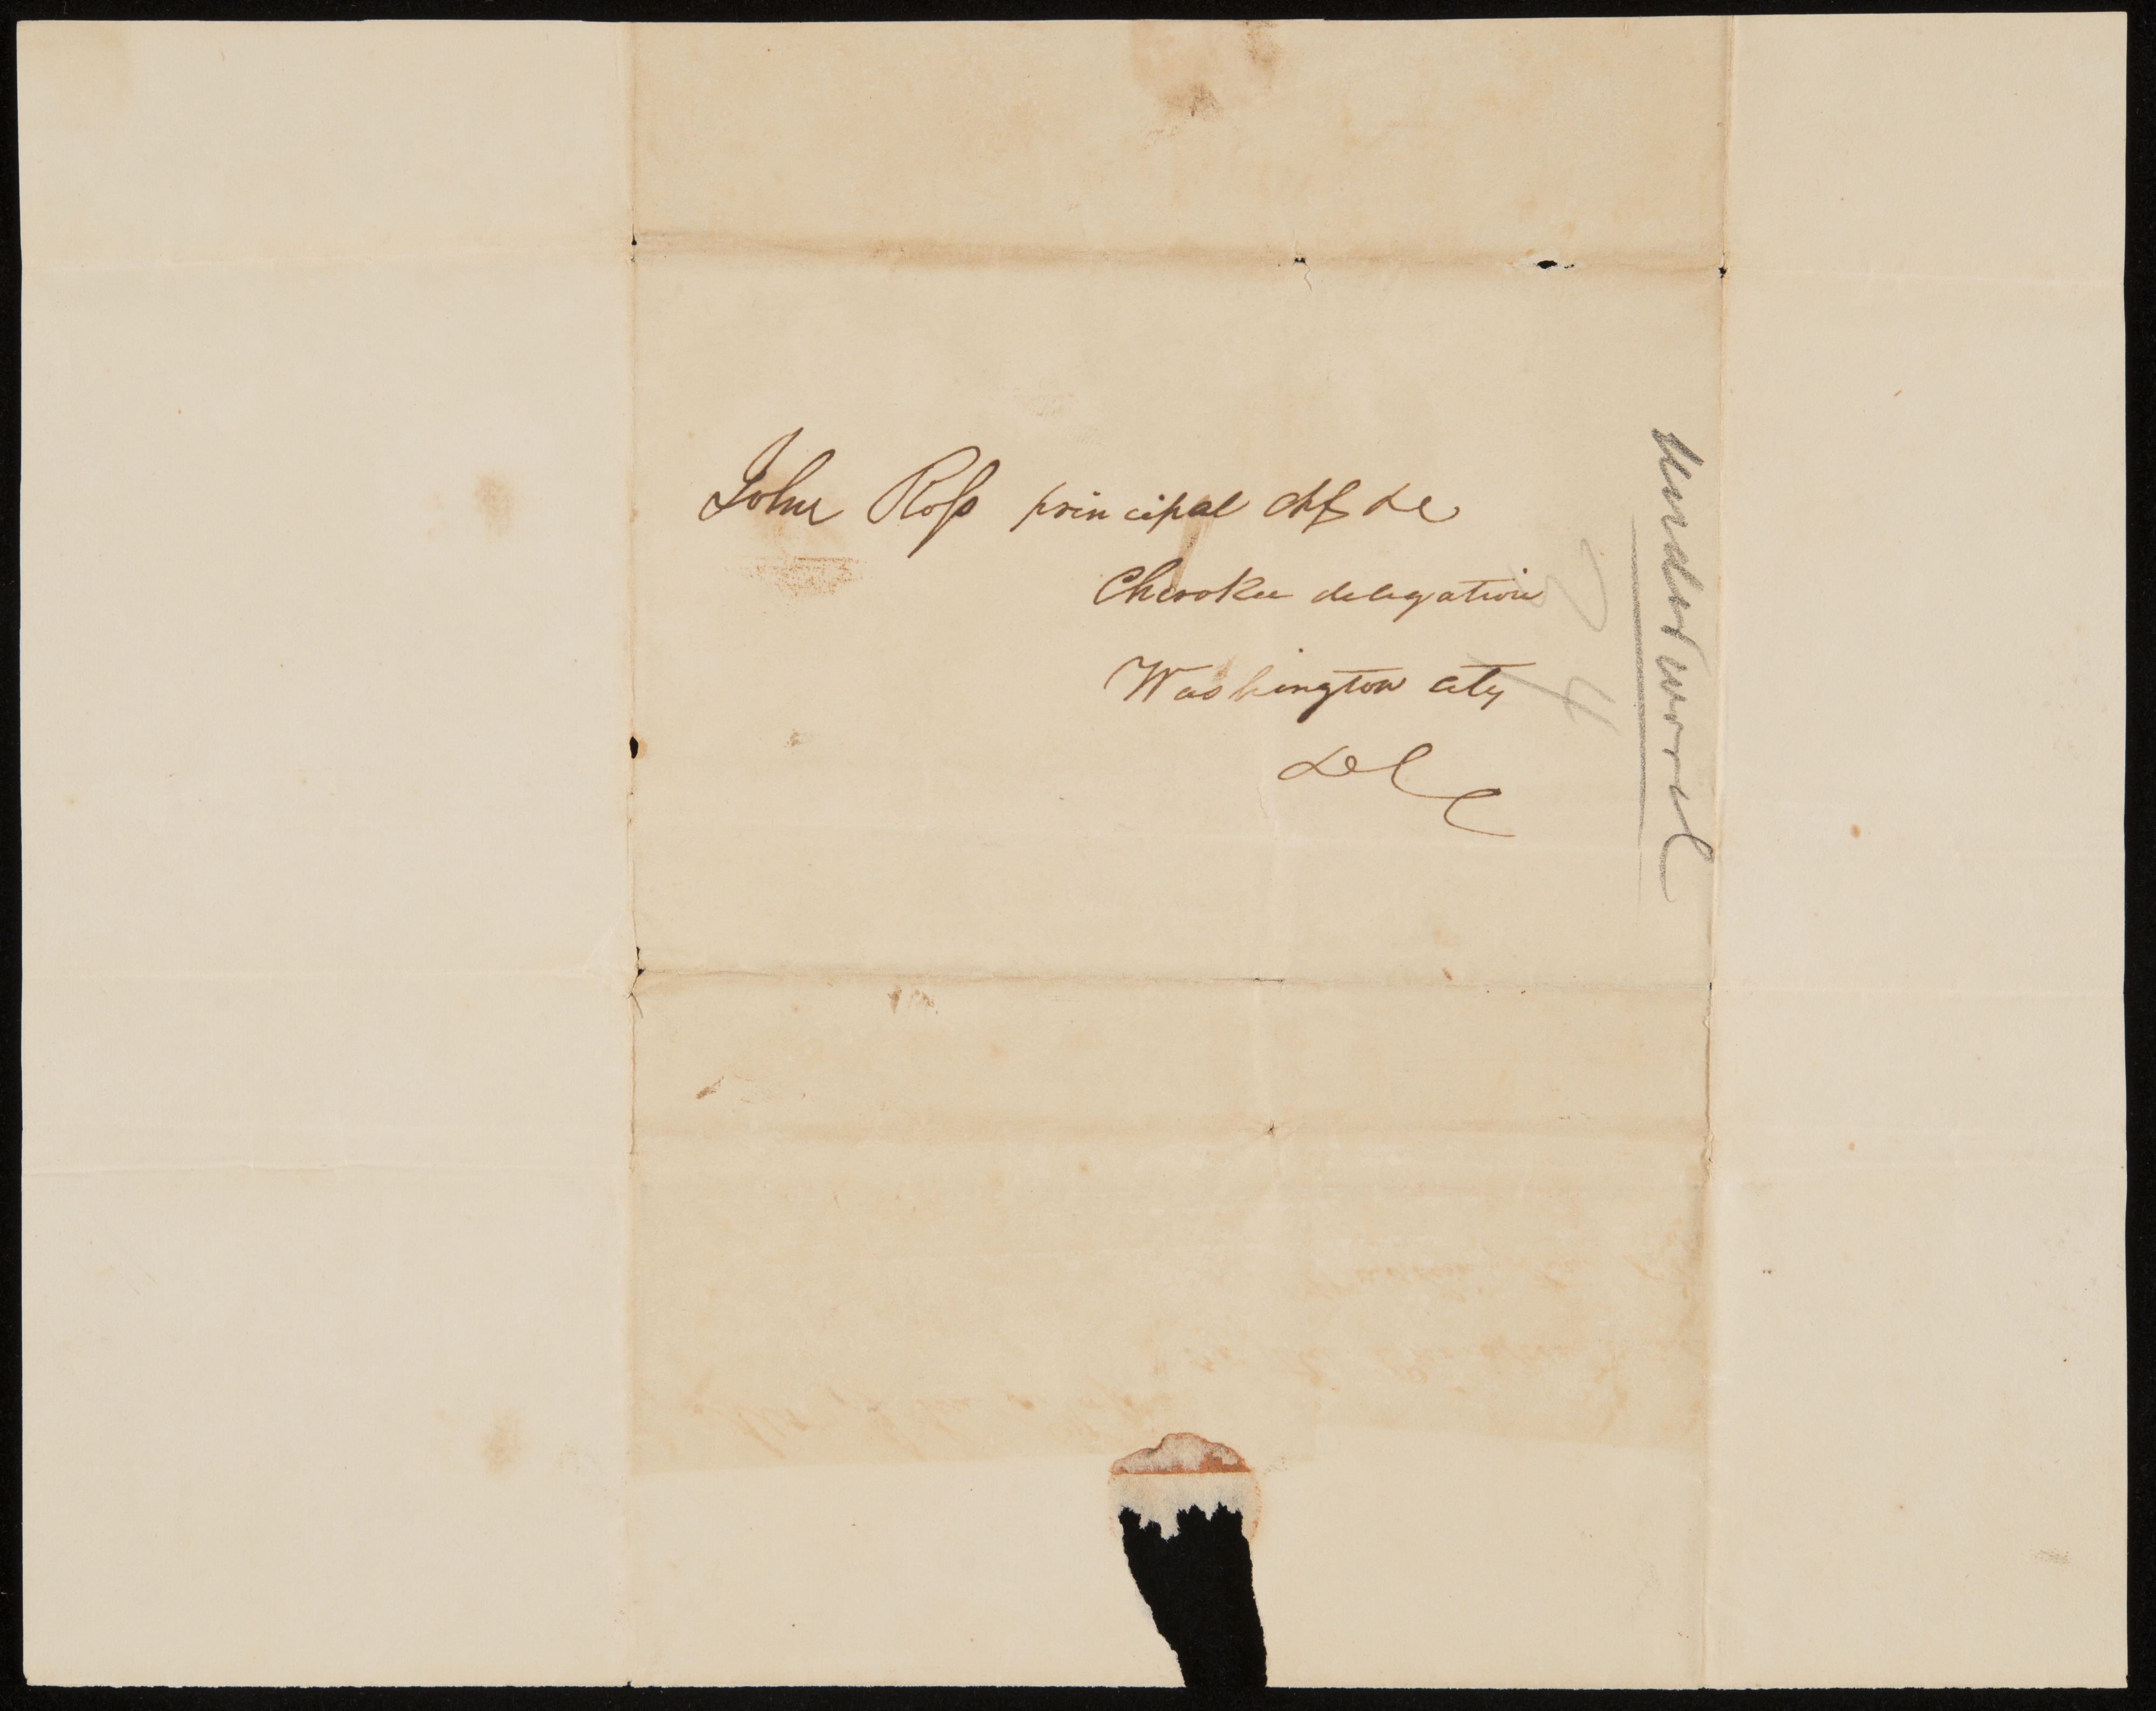 John Ross principal chf &c
Cherokee delegation
Washington city
DC
Underwood
24